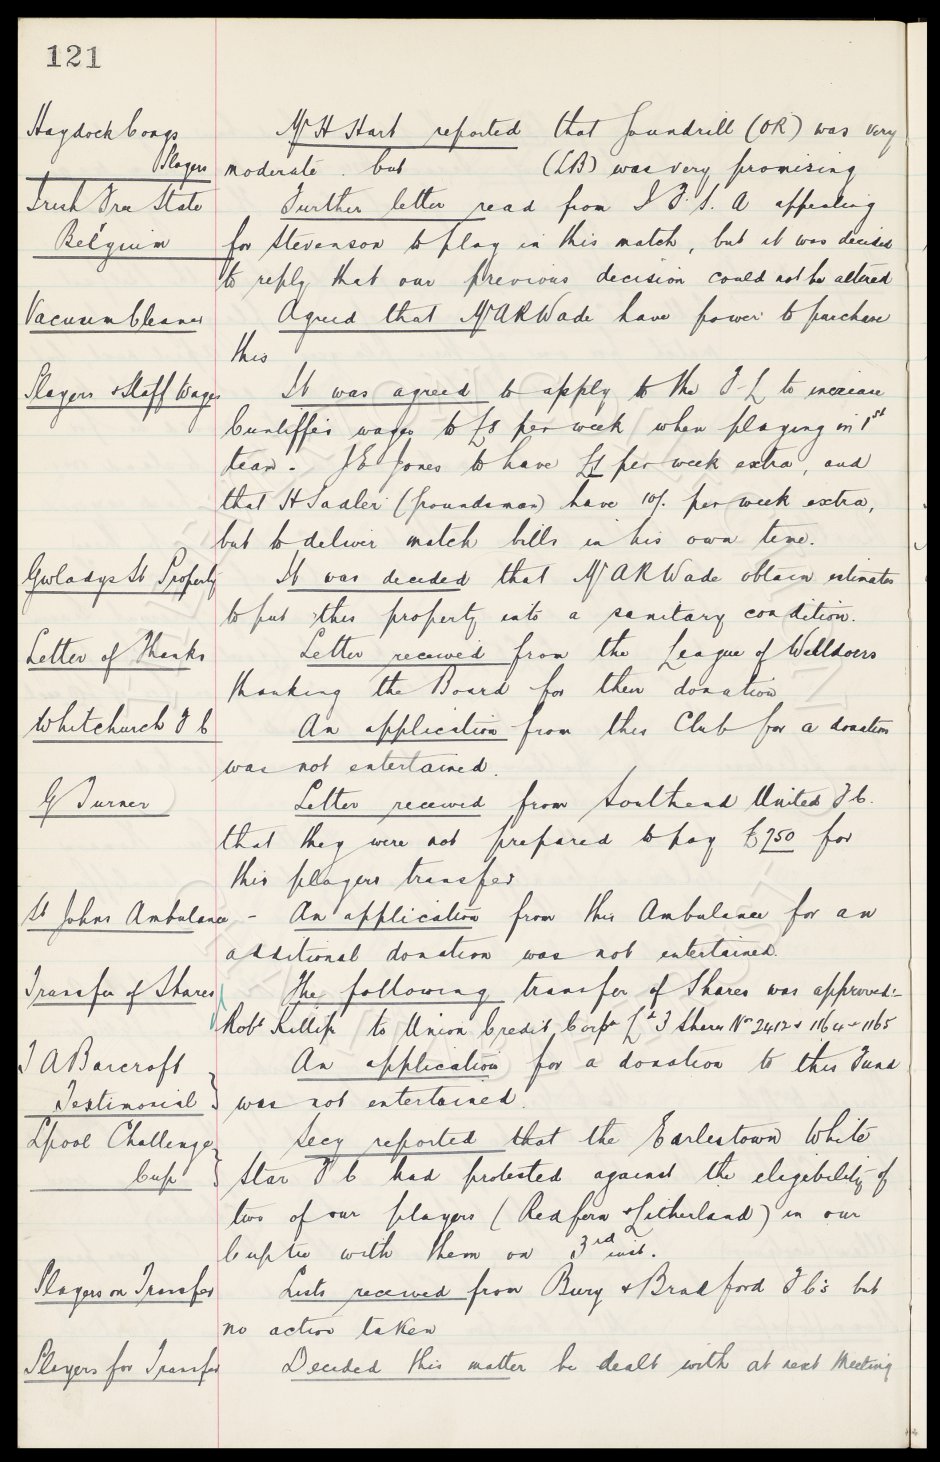 121
Haydock Congs Mr H Hart reported that Goundrill (OR) was very
Players moderate. but (LB) was very promising
Irish Free State Further letter read from I.F.S.A appealing
Belgium for Stevenson to play in this match, but it was decided
to reply that our previous decision could not be altered
Vacuum Cleaner Agreed that Mr A R Wade have power to purchase
this
Players & Staff Wages It was agreed to apply to the F L to increase
Cunliffe's wages to £8 per week when playing in 1st
team. J E Jones to have £1 per week extra, and
that H Sadler (groundsman) have 10/. per week extra,
but to deliver match bills in his own time.
Gwladys St Property It was decided that Mr A R Wade obtain estimates
to put this property into a sanitary condition.
Letter of Thanks Letter received from the League of Welldoers
thanking the Board for their donation
Whitchurch F C An application from this Club for a donation
was not entertained.
G Turner Letter received from Southend United F C.
that they were not prepared to pay £750 for
this players transfer
St Johns Ambulance - An application from this Ambulance for an
additional donation was not entertained.
Transfer of Shares The following transfer of Shares was approved:-
Robt Killip to Union Credit Corpn Ld 3 Shares Nos 2412 & 1164-1165
T A Barcroft An application for a donation to this Fund
Testimonial } was not entertained.
Lpool Challenge Secy reported that the Earlestown White
Cup } Star F C had protested against the eligibility of
two of our players (Redfern & Litherland) in our
Cuptie with them on 3rd inst.
Players on Transfer Lists received from Bury & Bradford F C's but
no action taken
Players for Transfer Decided this matter be dealt with at next Meeting